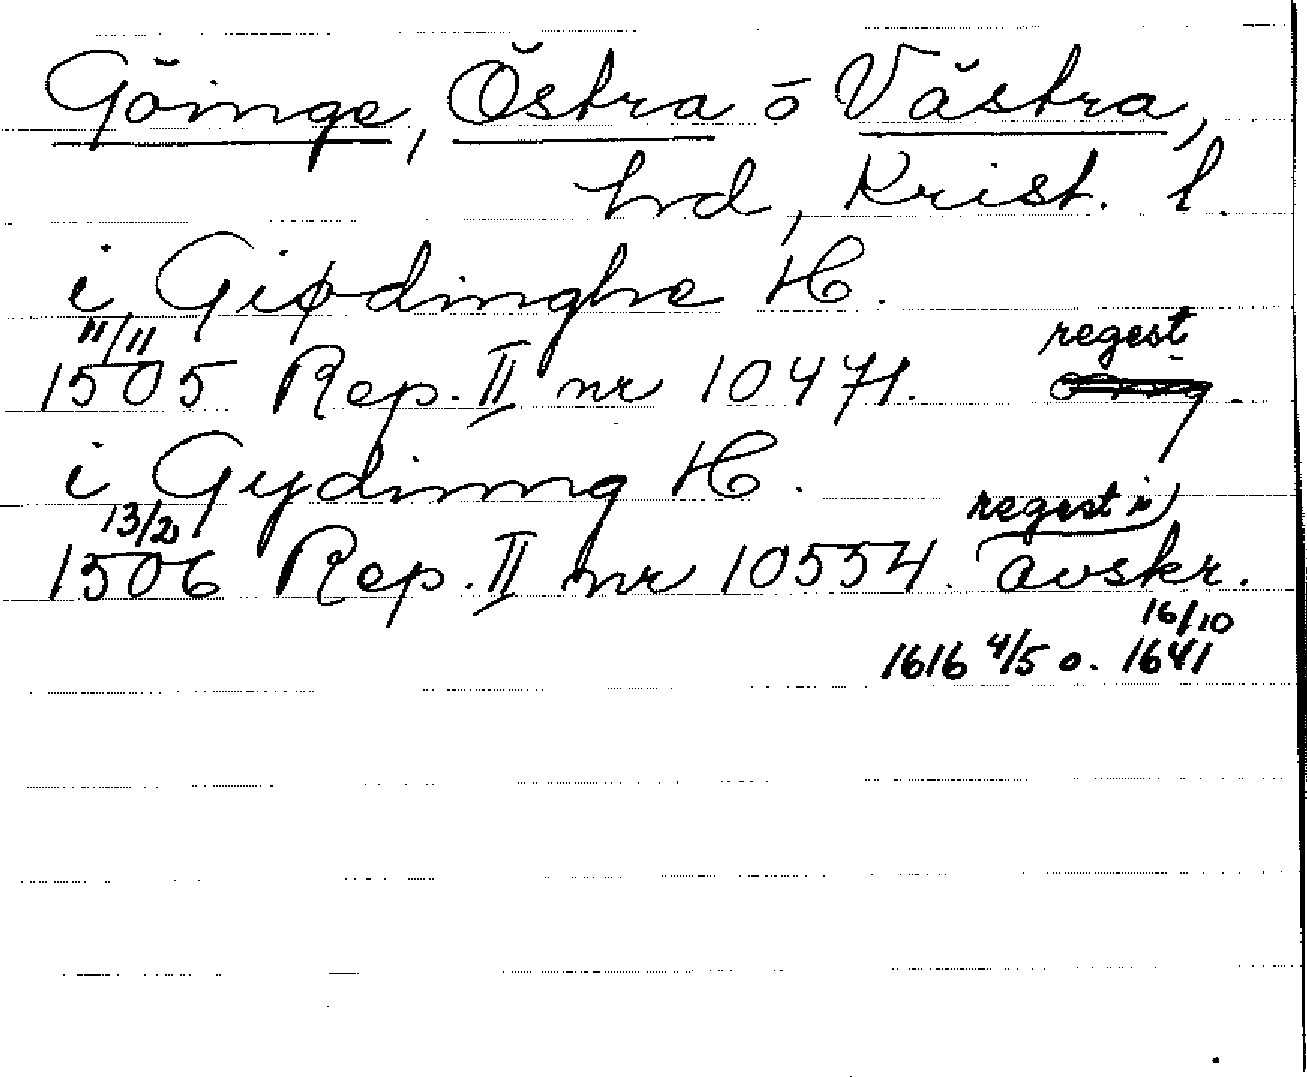 Göinge, Östra o Västra,
hrd, Krist. l.
i Giødinghe H.
11/11 regest
1505 Rep. II nr 10471.
i Gydinng H.
13/2 regest i
1506 Rep. II nr 10554. avskr.
16/10
1616 4/5 o. 1641